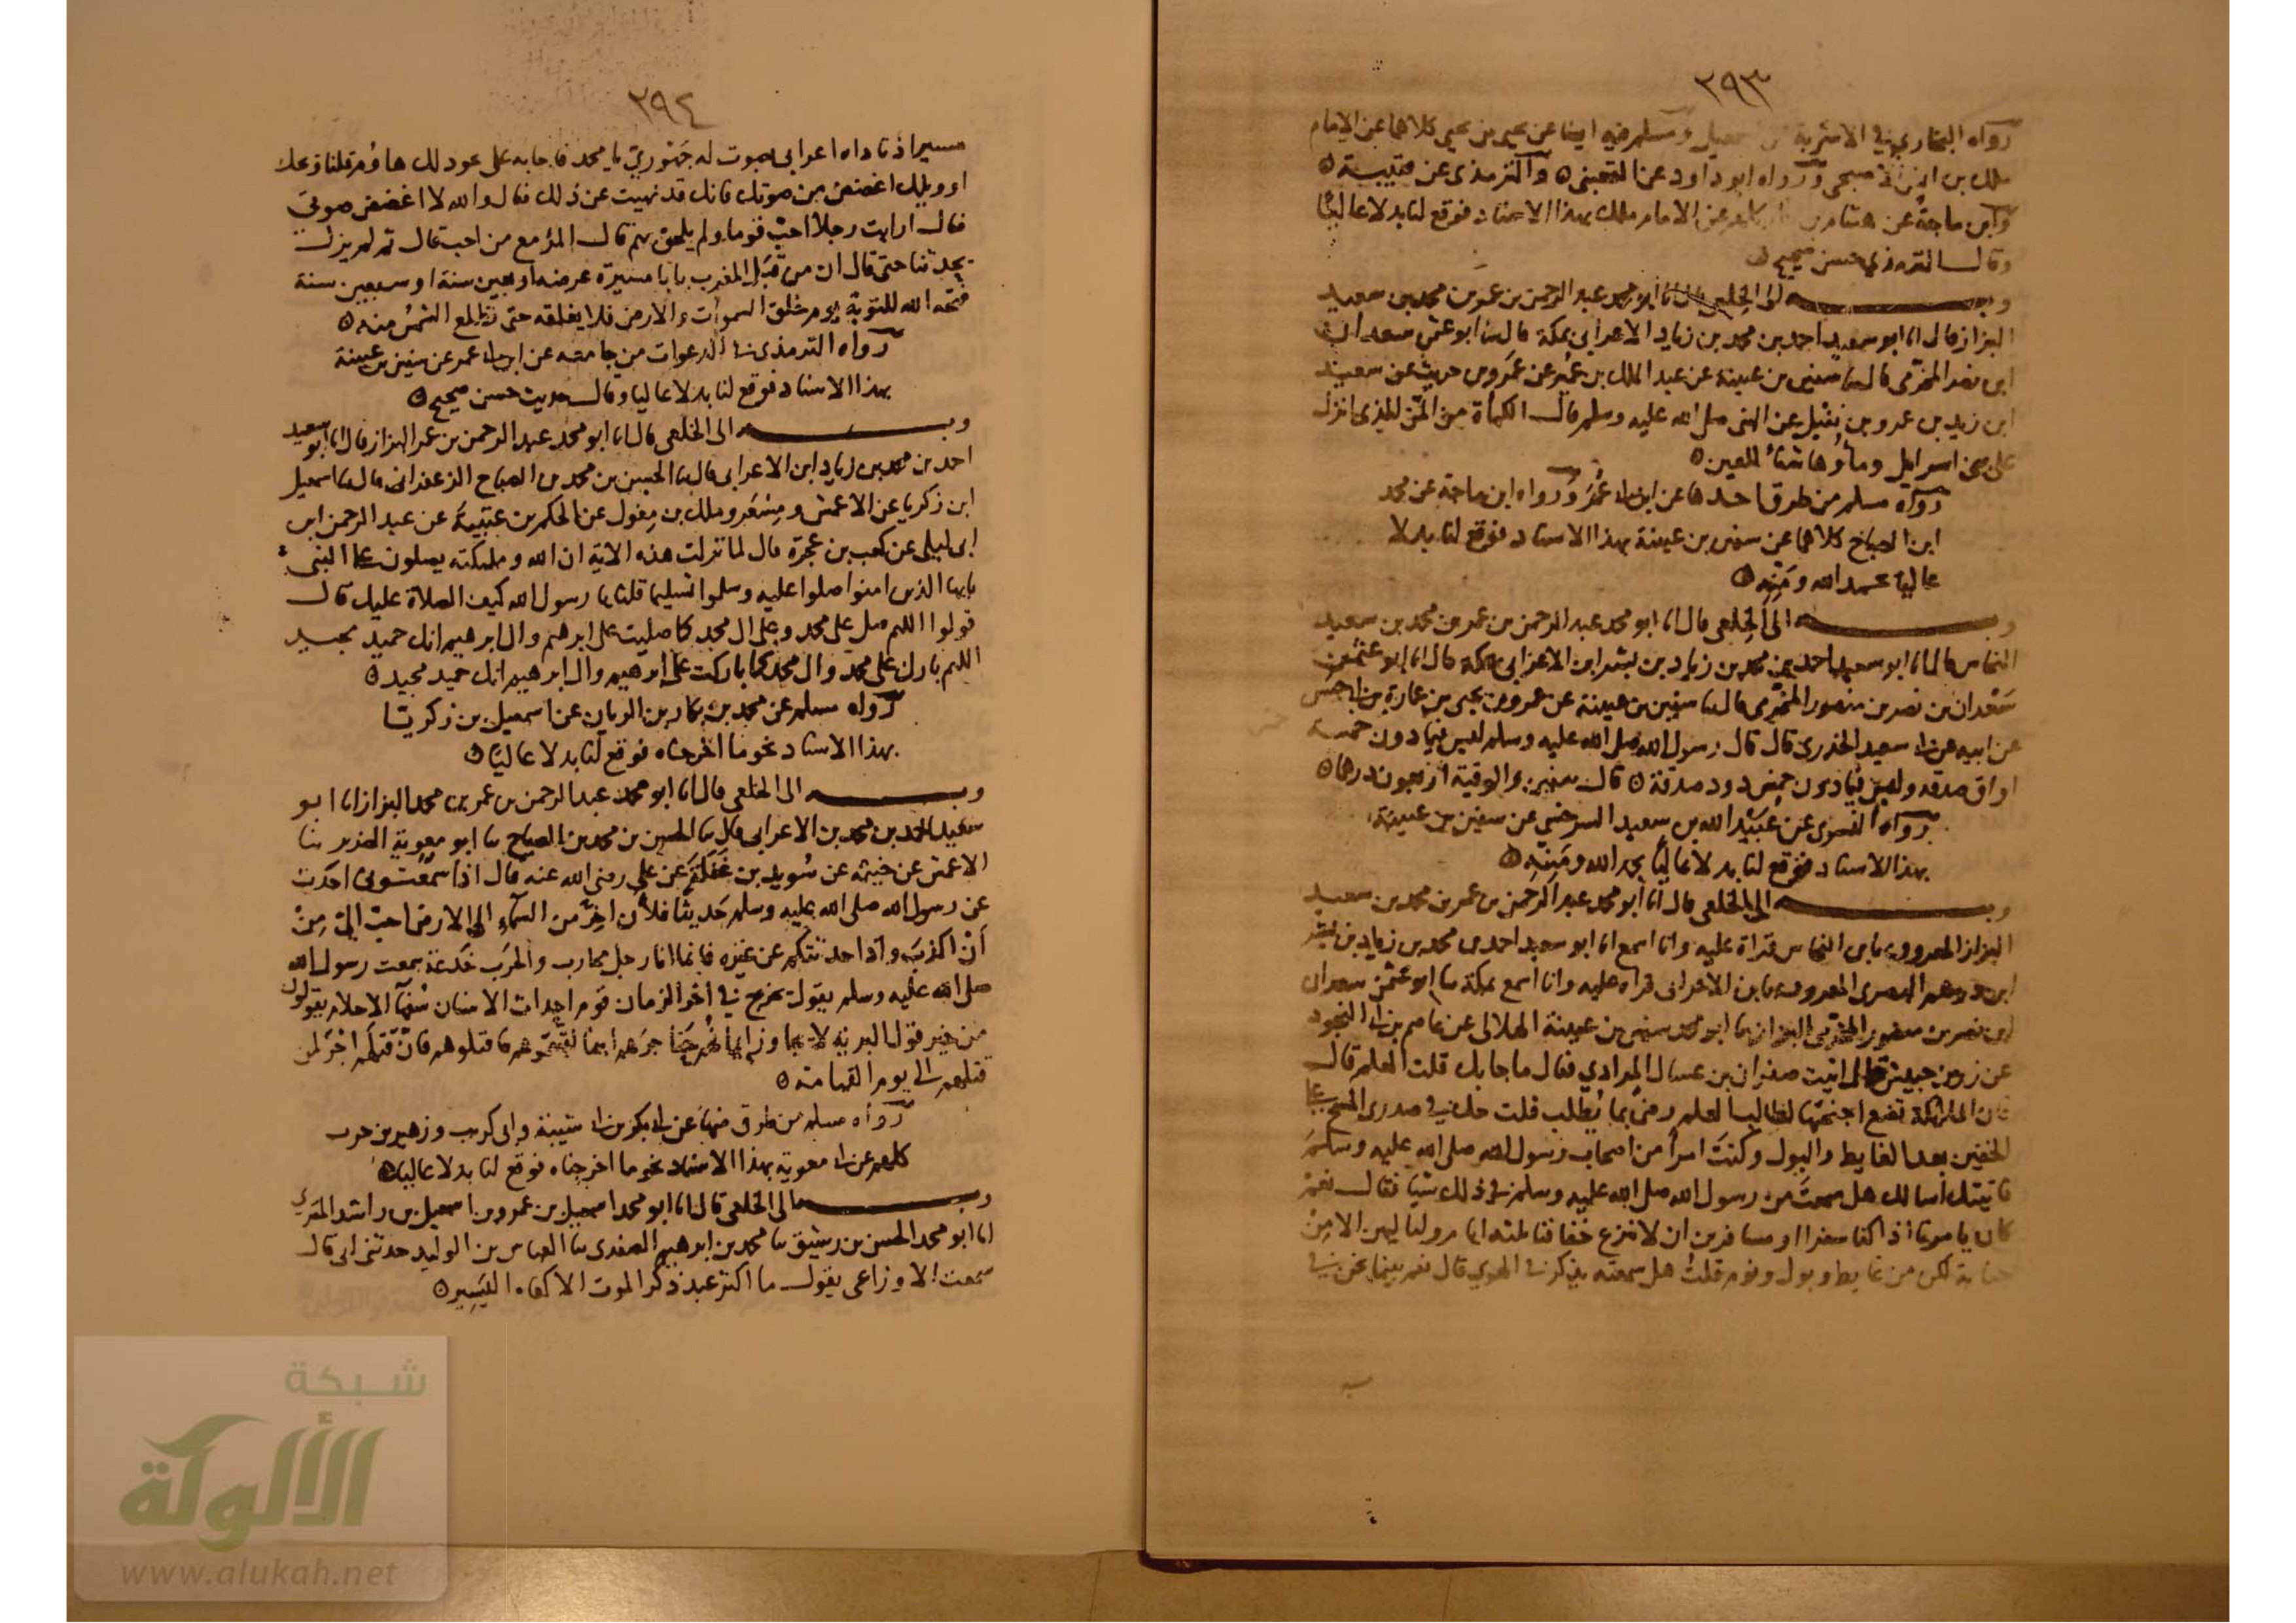 ٢٩٣
رواه البخاري في الاشربة عن اسمعيل ومسلم فيه ايضا عن يحيى بن يحيى كلاهما عن الامام
ملك بن انس الاصبحي ورواه ابو داود عن القعنبي ٥ والترمذي عن قتيبة ٥
وابن ماجة عن هشام بن عن الامام ملك بهذا الاسناد فوقع لنا بدلا عاليا
وقال الترمذي حسن صحيح ٥
وبه الى الخلعي قال انا ابو محمد عبد الرحمن بن عمر بن محمد بن سعيد
البزاز قال انا ابو سعيد احمد بن محمد بن زياد الاعرابي بمكة قال ثنا ابو عثمن سعدان
ابن نصر المخرمي قال ثنا سفين بن عيينة عن عبد الملك بن عمير عن عمرو بن حريث عن سعيد
ابن زيد بن عمرو بن نفيل عن النبي صلى الله عليه وسلم قال الكمأة من المن الذي انزل
على بني اسرايل وماؤها شفاء للعين ٥
رواه مسلم من طرق احدها عن ابن ابي عمر ورواه ابن ماجة عن محمد
ابن الصباح كلاهما عن سفين بن عيينة بهذا الاسناد فوقع لنا بدلا
عاليا بحمد الله ومنه ٥
وبه الى الخلعي قال انا ابو محمد عبد الرحمن بن عمر بن محمد بن سعيد
النحاس قال انا ابو سعيد احمد بن محمد بن زياد بن بشر ابن الاعرابي بمكة قال انا ابو عثمن
سعدان بن نصر بن منصور المخرمي قال ثنا سفين بن عيينة عن عمرو بن يحيى بن عمارة بن ابي حسن
عن ابيه عن ابي سعيد الخدري قال قال رسول الله صلى الله عليه وسلم ليس فيما دون خمسة
اواق صدقة وليس فيما دون خمس ذود صدقة ٥ قال سفين والوقية اربعون درهما ٥
رواه النسوي عن عبيد الله بن سعيد السرخسي عن سفين بن عيينة
بهذا الاسناد فوقع لنا بدلا عاليا بحمد الله ومنه ٥
وبه الى الخلعي قال انا ابو محمد عبد الرحمن بن عمر بن محمد بن سعيد
البزاز المعروف بابن النحاس قراة عليه وانا اسمع انا ابو سعيد احمد بن محمد بن زياد بن بشر
ابن درهم البصري المعروف بابن الاعرابي قراه عليه وانا اسمع بمكة ثنا ابو عثمن سعدان
ابن نصر بن منصور المخرمي البزاز ثنا ابو محمد سفين بن عيينة الهلالي عن عاصم بن ابي النجود
عن زر بن حبيش قال اتيت صفوان بن عسال المرادي فقال ما جا بك قلت العلم قال
فان الملائكة تضع اجنحتها لطالب العلم رضى بما يطلب قلت حك في صدري المسح على
الخفين بعد الغايط والبول وكنت امرأ من اصحاب رسول الله صلى الله عليه وسلم
فاتيتك اسالك هل سمعت من رسول الله صلى الله عليه وسلم في ذلك شيا فقال نعم
كان يامرنا اذا كنا سفرا او مسافرين ان لا ننزع خفافنا ثلثه ايام ولياليهن الا من
جنابة لكن من غايط وبول ونوم قلت هل سمعته يذكر في الهوي قال نعم بينما نحن في
٢٩٤
مسير اذ ناداه اعرابي بصوت له جهوري يا محمد فاجابه على عود لك هاؤم قلنا ويحك
او ويلك اغضض من صوتك فانك قد نهيت عن ذلك فقال والله لا اغضض صوتي
فقال ارايت رجلا احب قوما ولم يلحق بهم قال المرؤ مع من احب قال ثم لم يزل
يحدثنا حتى قال ان من قبل المغرب بابا مسيرة عرضه اربعين سنة او سبعين سنة
فتحه الله للتوبة يوم خلق السموات والارض فلا يغلقه حتى تطلع الشمس منه ٥
رواه الترمذي في الدعوات من جامعه عن ابن ابي عمر عن سفين بن عيينة
بهذا الاسناد فوقع لنا بدلا عاليا وقال حديث حسن صحيح ٥
وبه الى الخلعي قال انا ابو محمد عبد الرحمن بن عمر البزاز قال انا ابو سعيد
احمد بن محمد بن زياد ابن الاعرابي قال ثنا الحسن بن محمد بن الصباح الزعفراني قال ثنا اسمعيل
ابن زكريا عن الاعمش ومسعر وملك بن مغول عن الحكم بن عتيبة عن عبد الرحمن ابن
ابي ليلى عن كعب بن عجرة قال لما نزلت هذه الاية ان الله وملئكته يصلون على النبي
يايها الذين امنوا صلوا عليه وسلموا تسليما قلنا يا رسول الله كيف الصلاة عليك قال
قولوا اللهم صل على محمد وعلى ال محمد كما صليت على ابرهيم وال ابرهيم انك حميد مجيد
اللهم بارك على محمد وال محمد كما باركت على ابرهيم وال ابرهيم انك حميد مجيد ٥
رواه مسلم عن محمد بن بكار بن الريان عن اسمعيل بن زكريا
بهذا الاسناد نحو ما اخرجناه فوقع لنا بدلا عاليا ٥
وبه الى الخلعي قال انا ابو محمد عبد الرحمن بن عمر بن محمد البزاز انا ابو
سعيد احمد بن محمد بن الاعرابي قال ثنا الحسن بن محمد بن الصباح ثنا ابو معوية الضرير ثنا
الاعمش عن خيثمة عن سويد بن غفلة عن علي رضي الله عنه قال اذا سمعتموني احدث
عن رسول الله صلى الله عليه وسلم حديثا فلأن اخر من السماء الى الارض احب الي من
أن اكذب واذا حدثتكم عن غيره فانما انا رجل محارب والحرب خدعة سمعت رسول الله
صلى الله عليه وسلم يقول يخرج في اخر الزمان قوم احداث الاسنان سفهآ الاحلام يقولون
من خير قول البرية لا يجاوز ايمانهم حناجرهم اينما لقيتموهم فاقتلوهم فان قتلهم اجر لمن
قتلهم الى يوم القيامة ٥
رواه مسلم من طرق منها عن ابي بكر بن ابي شيبة وابي كريب وزهير بن حرب
كلهم عن ابي معوية بهذا الاسناد نحو ما اخرجناه فوقع لنا بدلا عاليا ٥
وبه الى الخلعي قال انا ابو محمد اسمعيل بن عمرو بن اسمعيل بن راشد المقرئ
انا ابو محمد الحسن بن رشيق ثنا محمد بن ابرهيم الصفدي ثنا العباس بن الوليد حدثني ابي قال
سمعت الاوزاعي يقول ما اكثر عبد ذكر الموت الا كفاه اليسير ٥
شبكة
الألوكة
www.alukah.net